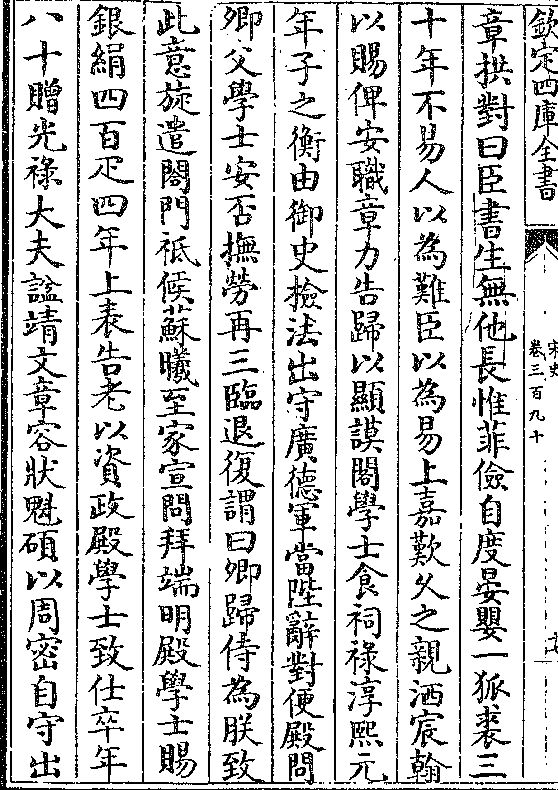 欽定四庫全書
宋史
卷三百九十
章拱對曰臣書生無他長惟菲儉自度晏嬰一狐裘三
十年不易人以為難臣以為易上嘉歎久之親洒宸翰
以賜俾安職章力告歸以顯謨閣學士食祠祿淳熙元
年子之衡由御史檢法出守廣德軍當陛辭對便殿問
卿父學士安否撫勞再三臨退復謂曰卿歸侍為朕致
此意旋遣閤門祗候蘇曦至家宣問拜端明殿學士賜
銀絹四百疋四年上表告老以資政殿學士致仕卒年
八十贈光祿大夫諡靖文章容狀魁碩以周密自守出